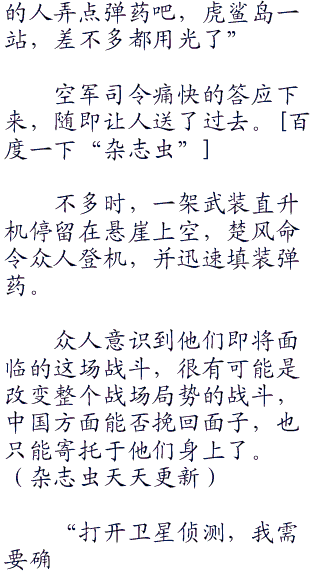 的人弄点弹药吧，虎鲨岛一
站，差不多都用光了”
空军司令痛快的答应下
来，随即让人送了过去。[百
度一下“杂志虫”]
不多时，一架武装直升
机停留在悬崖上空，楚风命
令众人登机，并迅速填装弹
药。
众人意识到他们即将面
临的这场战斗，很有可能是
改变整个战场局势的战斗，
中国方面能否挽回面子，也
只能寄托于他们身上了。
（杂志虫天天更新）
“打开卫星侦测，我需
要确